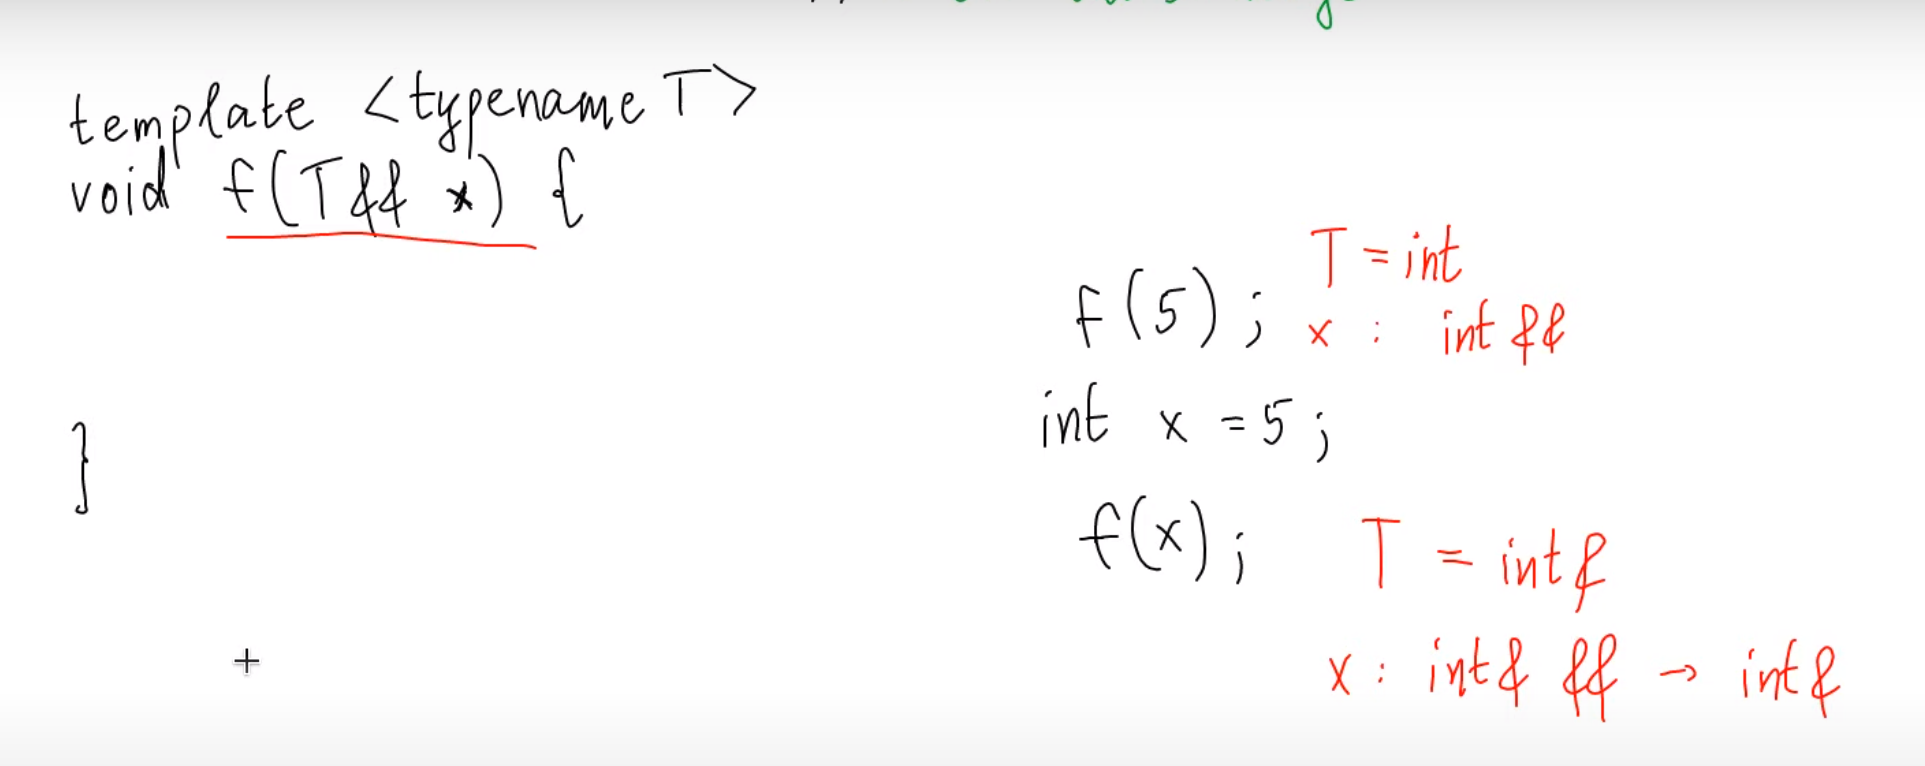 template <typename T>
void f(T&& x) {
}
f(5); T = int
x : int &&
int x = 5;
f(x); T = int&
x : int& && → int&